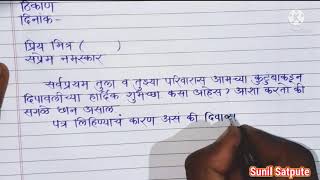 ठिकाण
दिनांक-
प्रिय मित्र (          )
सप्रेम नमस्कार
सर्वप्रथम तुला व तुझ्या परिवारास आमच्या कुटुंबाकडून
दिपावलीच्या हार्दिक शुभेच्छा कसा आहेस? आशा करतो की
सगळे छान असाल.
पत्र लिहिण्याचं कारण अस की दिवाळ
Sunil Satpute